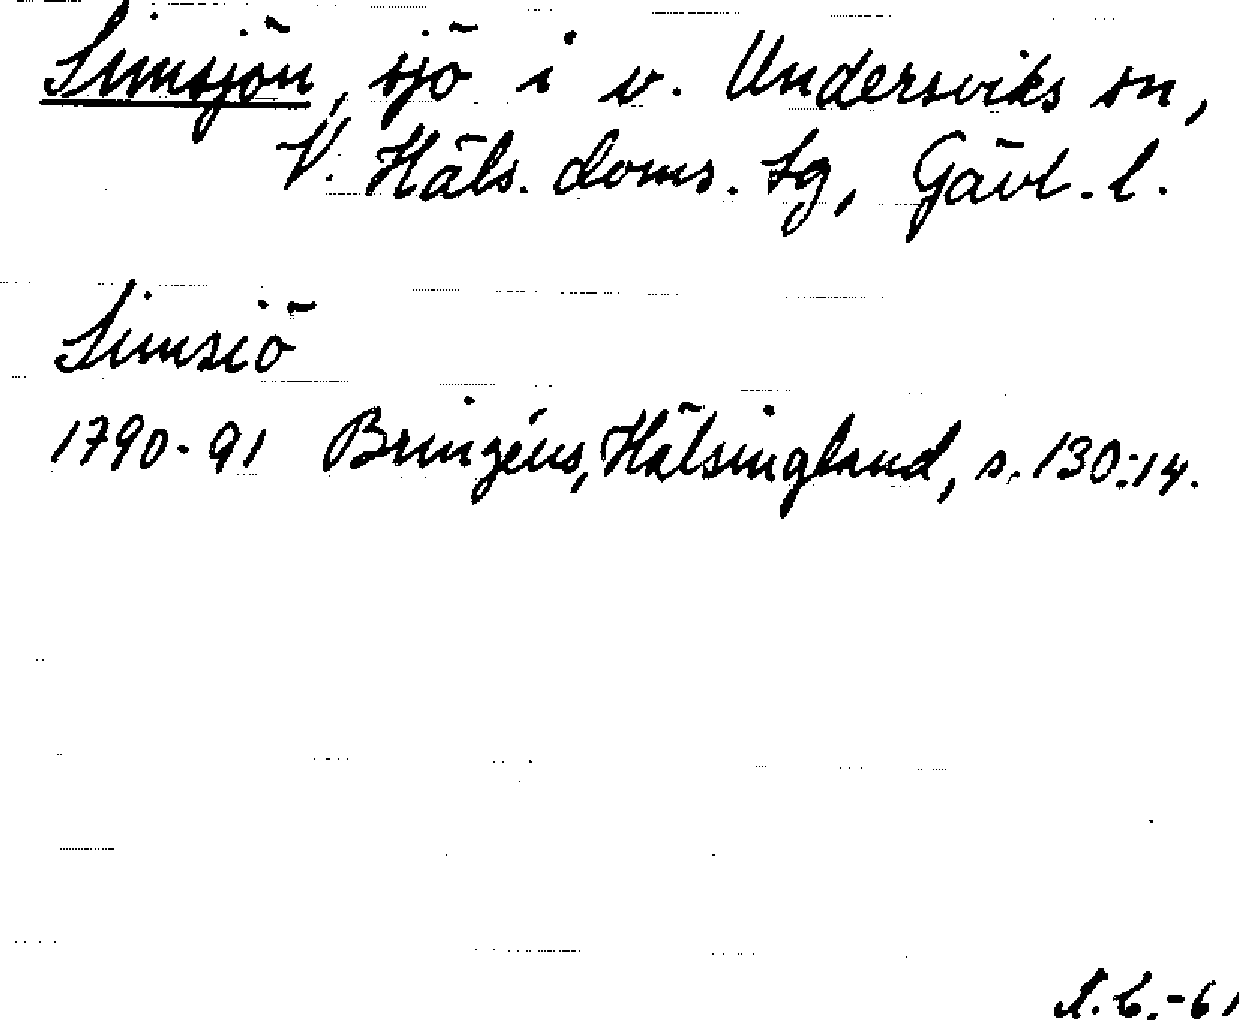 Simsjön, sjö i v. Undersviks sn,
V. Häls. doms. tg, Gävl. l.
Simsiö
1790-91 Bringéus, Hälsingland, s. 130:14.
S.C.-61